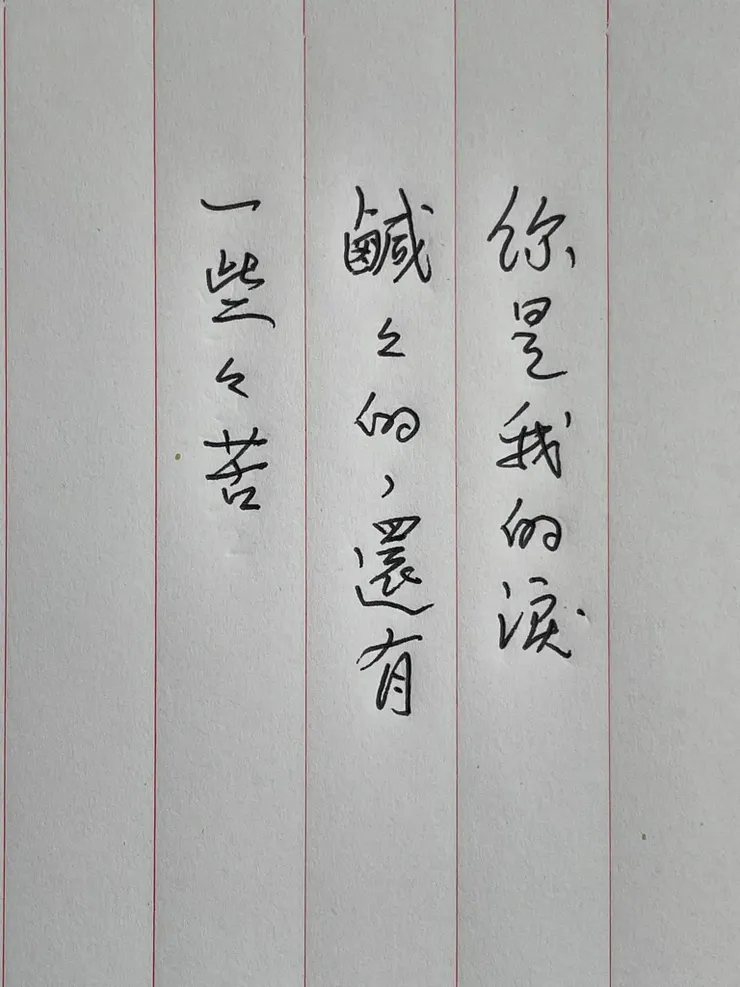 你是我的淚
鹹々的，還有
一些々苦